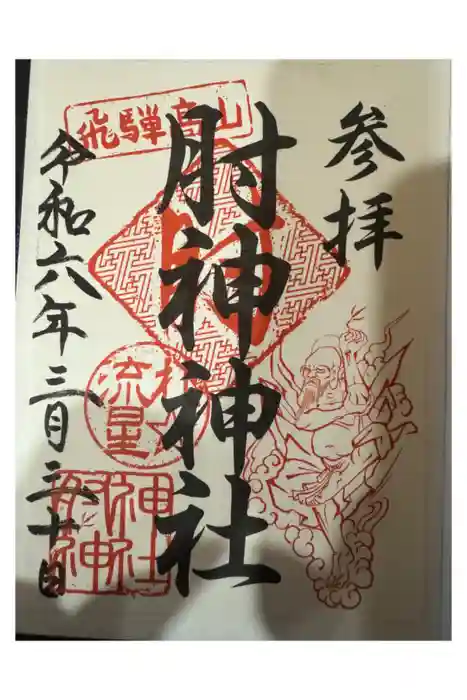 参拝
飛騨高山
肘神神社
流星
令和六年三月三十日
肘神
神社